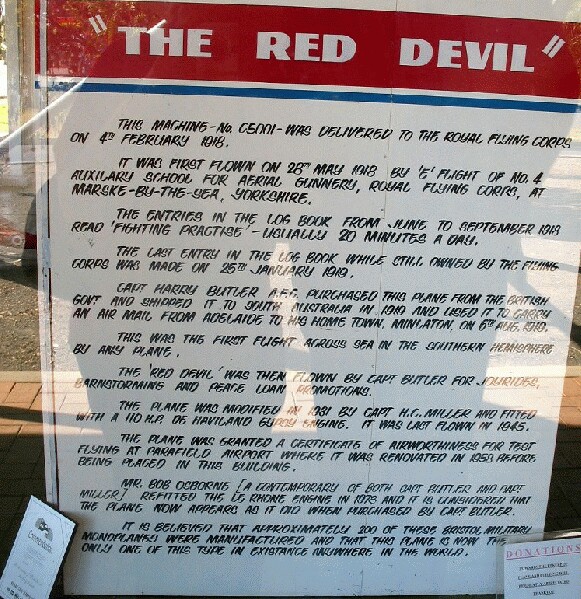 "THE RED DEVIL"
THIS MACHINE - No. C5001 - WAS DELIVERED TO THE ROYAL FLYING CORPS
ON 4TH FEBRUARY 1918.
IT WAS FIRST FLOWN ON 28TH MAY 1918 BY 'E' FLIGHT OF NO. 4
AUXILARY SCHOOL FOR AERIAL GUNNERY, ROYAL FLYING CORPS, AT
MARSKE-BY-THE-SEA, YORKSHIRE.
THE ENTRIES IN THE LOG BOOK FROM JUNE TO SEPTEMBER 1918
READ 'FIGHTING PRACTISE' - USUALLY 20 MINUTES A DAY.
THE LAST ENTRY IN THE LOG BOOK WHILE STILL OWNED BY THE FLYING
CORPS WAS MADE ON 25TH JANUARY 1919.
CAPT HARRY BUTLER A.F.C. PURCHASED THIS PLANE FROM THE BRITISH
GOVT AND SHIPPED IT TO SOUTH AUSTRALIA IN 1919 AND USED IT TO CARRY
AN AIR MAIL FROM ADELAIDE TO HIS HOME TOWN, MINLATON, ON 6TH AUG. 1919.
THIS WAS THE FIRST FLIGHT ACROSS SEA IN THE SOUTHERN HEMISPHERE
BY ANY PLANE.
THE 'RED DEVIL' WAS THEN FLOWN BY CAPT BUTLER FOR JOYRIDES,
BARNSTORMING AND PEACE LOAN PROMOTIONS.
THE PLANE WAS MODIFIED IN 1931 BY CAPT H.C. MILLER AND FITTED
WITH A 110 H.P. DE HAVILAND GYPSY ENGINE. IT WAS LAST FLOWN IN 1945.
THE PLANE WAS GRANTED A CERTIFICATE OF AIRWORTHINESS FOR TEST
FLYING AT PARAFIELD AIRPORT WHERE IT WAS RENOVATED IN 1958 BEFORE
BEING PLACED IN THIS BUILDING.
MR. BOB OSBORNE [A CONTEMPORARY OF BOTH CAPT BUTLER AND CAPT
MILLER] REFITTED THE LE RHONE ENGINE IN 1973 AND IT IS CONSIDERED THAT
THE PLANE NOW APPEARS AS IT DID WHEN PURCHASED BY CAPT. BUTLER.
IT IS BELIEVED THAT APPROXIMATELY 200 OF THESE BRISTOL MILITARY
MONOPLANES WERE MANUFACTURED AND THAT THIS PLANE IS NOW THE
ONLY ONE OF THIS TYPE IN EXISTANCE ANYWHERE IN THE WORLD.
DONATIONS